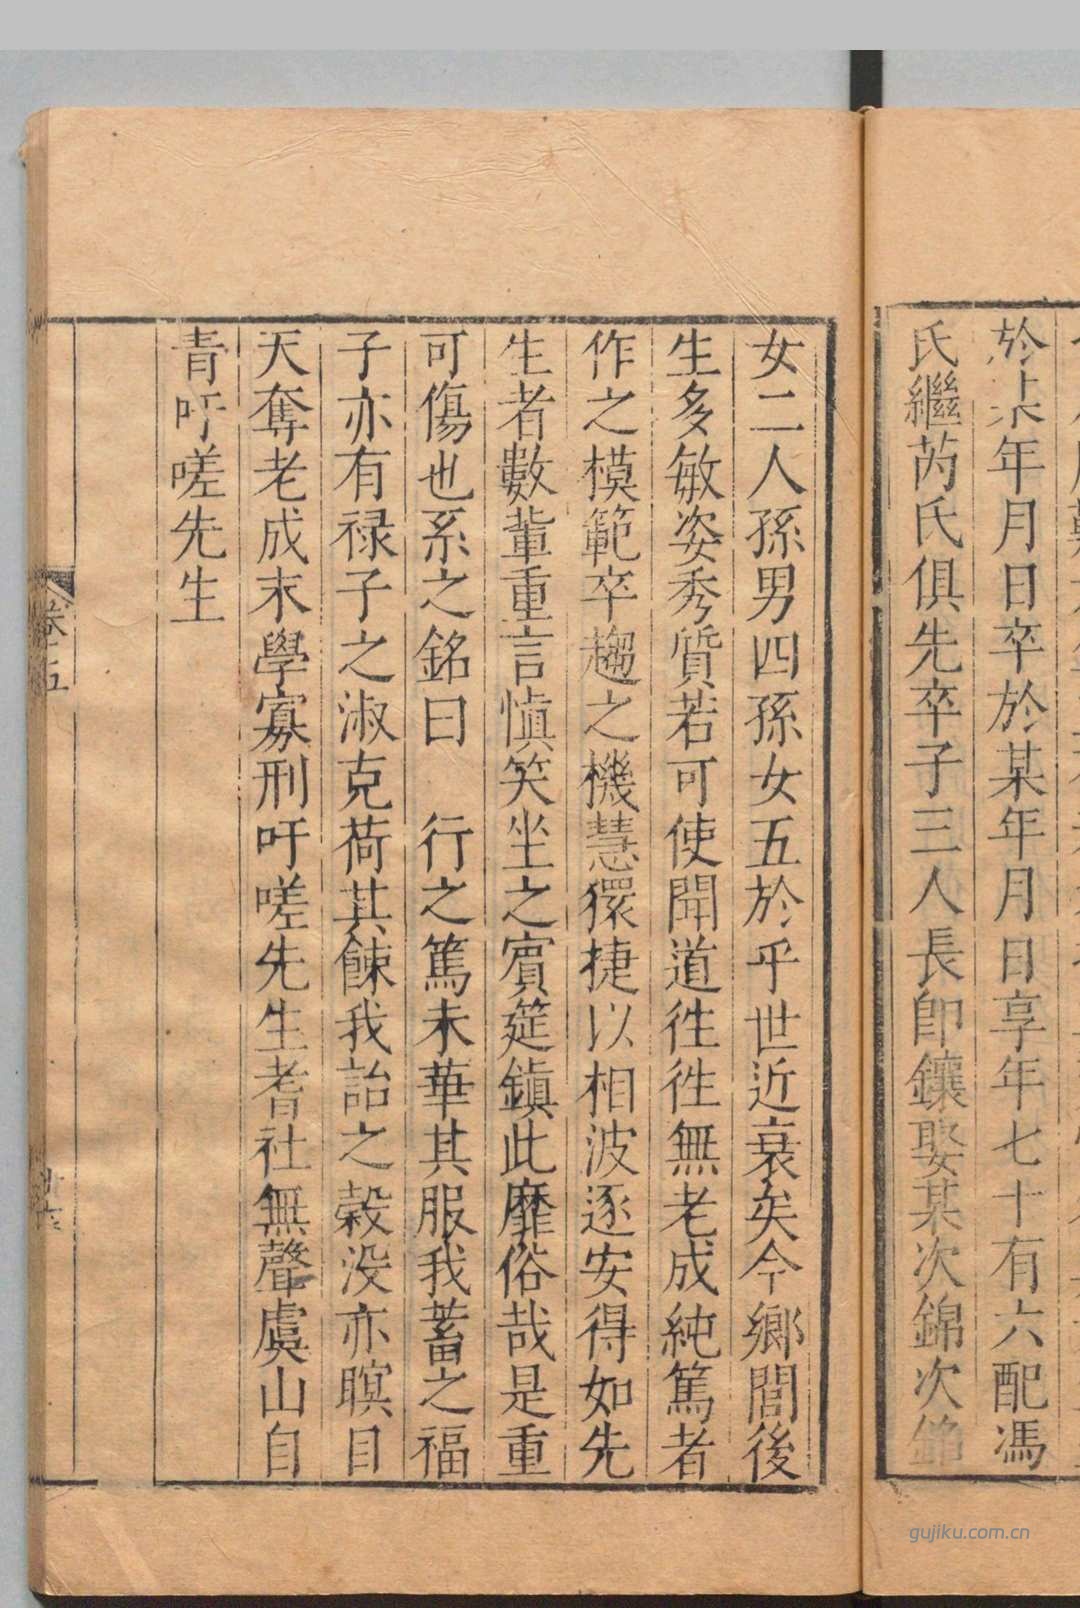 於某年月日卒於某年月日享年七十有六配馮
氏繼芮氏俱先卒子三人長即鑲娶某次錦次銘
女二人孫男四孫女五於乎世近衰矣今鄉閭後
生多敏姿秀質若可使聞道徃徃無老成純篤者
作之模範卒趨之機慧獧捷以相波逐安得如先
生者數輩重言慎笑坐之賓筵鎮此靡俗哉是重
可傷也系之銘曰 行之篤未華其服我蓄之福
子亦有禄子之淑克荷其餗我詒之榖没亦瞑目
天奪老成末學寡刑吁嗟先生耆社無聲虞山自
青吁嗟先生
卷五
gujiku.com.cn